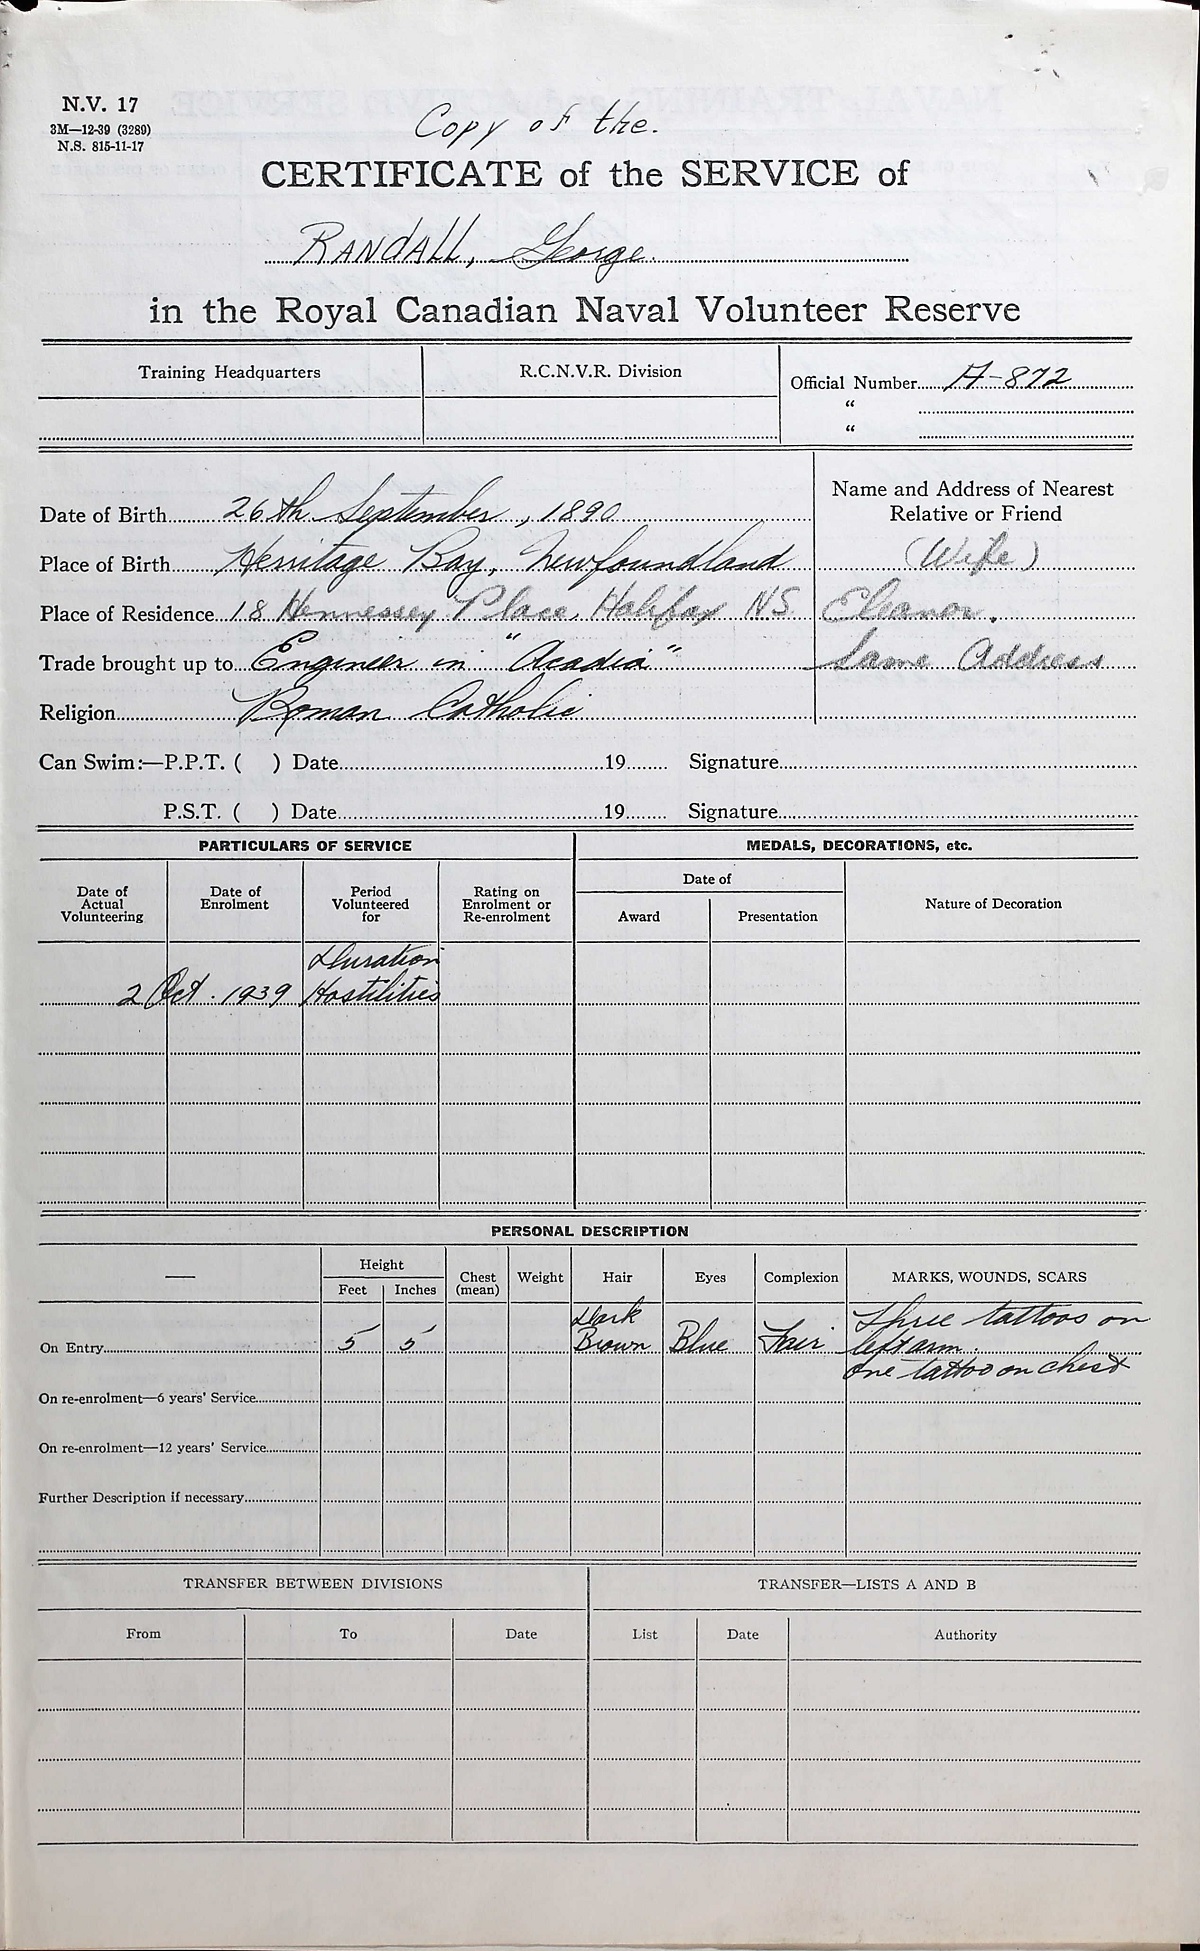 N.V. 17
3M—12-39 (3289)
N.S. 815-11-17
Copy of the.
CERTIFICATE of the SERVICE of
RANDALL, George.
in the Royal Canadian Naval Volunteer Reserve
Training Headquarters R.C.N.V.R. Division
Official Number A-872
"
"
Name and Address of Nearest
Relative or Friend
Date of Birth 26th September, 1890
Place of Birth Hermitage Bay, Newfoundland (Wife)
Place of Residence 18 Hennessey Place, Halifax N.S. Eleanor.
Trade brought up to Engineer in "Acadia" Same Address
Religion Roman Catholic
Can Swim:—P.P.T. ( ) Date 19 Signature
P.S.T. ( ) Date 19 Signature
PARTICULARS OF SERVICE MEDALS, DECORATIONS, etc.
Date of Actual Volunteering Date of Enrolment Period Volunteered for Rating on Enrolment or Re-enrolment Date of Nature of Decoration
Award Presentation
Duration
2 Oct. 1939 Hostilities
PERSONAL DESCRIPTION
— Height Chest (mean) Weight Hair Eyes Complexion MARKS, WOUNDS, SCARS
Feet Inches
Dark Three tattoos on
On Entry 5 5 Brown Blue Fair left arm.
One tattoo on chest
On re-enrolment—6 years' Service
On re-enrolment—12 years' Service
Further Description if necessary
TRANSFER BETWEEN DIVISIONS TRANSFER—LISTS A AND B
From To Date List Date Authority